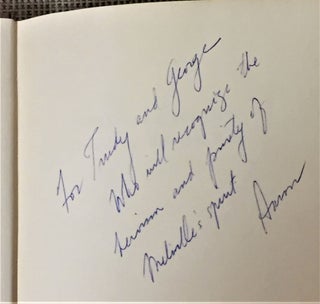 For Trudy and George
Who will recognize the
heroism and purity of
Melville's spirit
Aaron